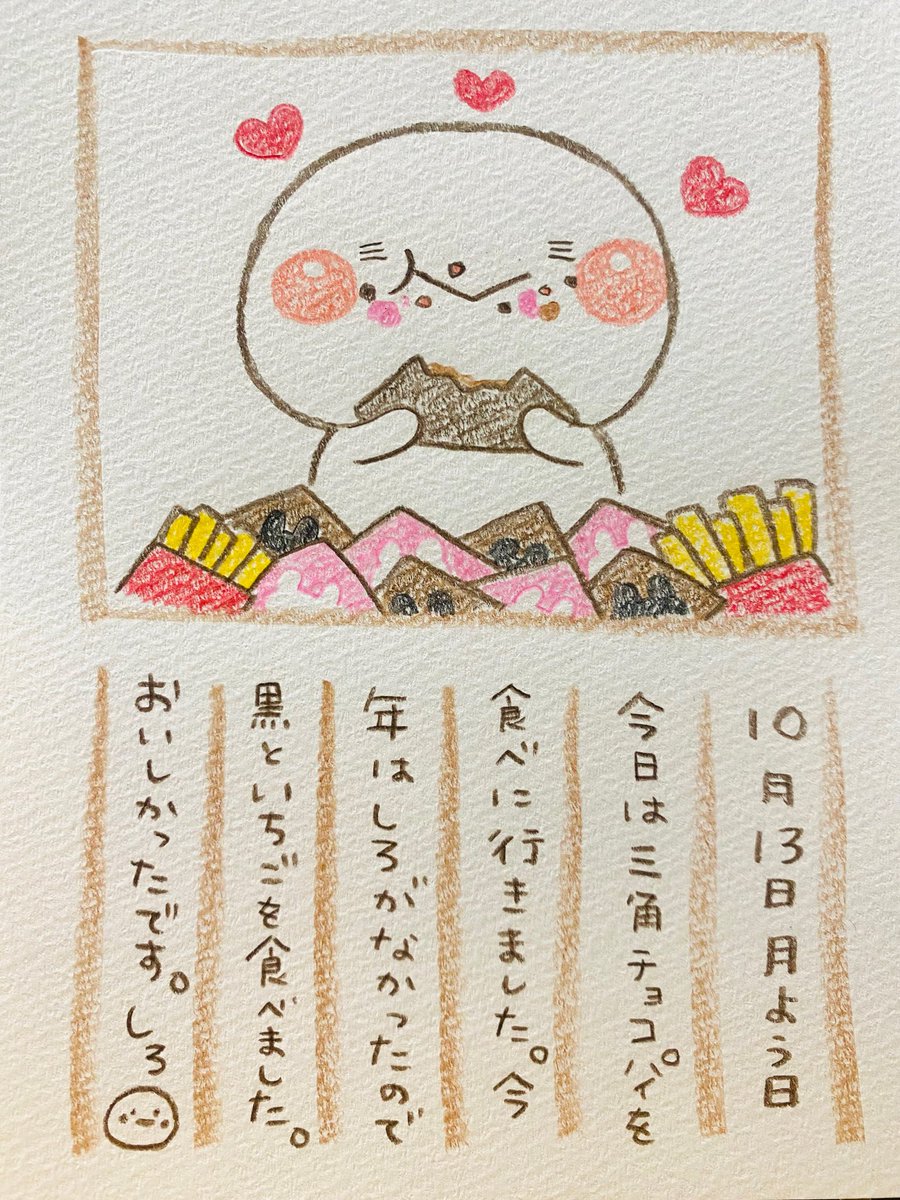 10月13日月よう日
今日は三角チョコパイを
食べに行きました。今
年はしろがなかったので
黒といちごを食べました。
おいしかったです。しろ